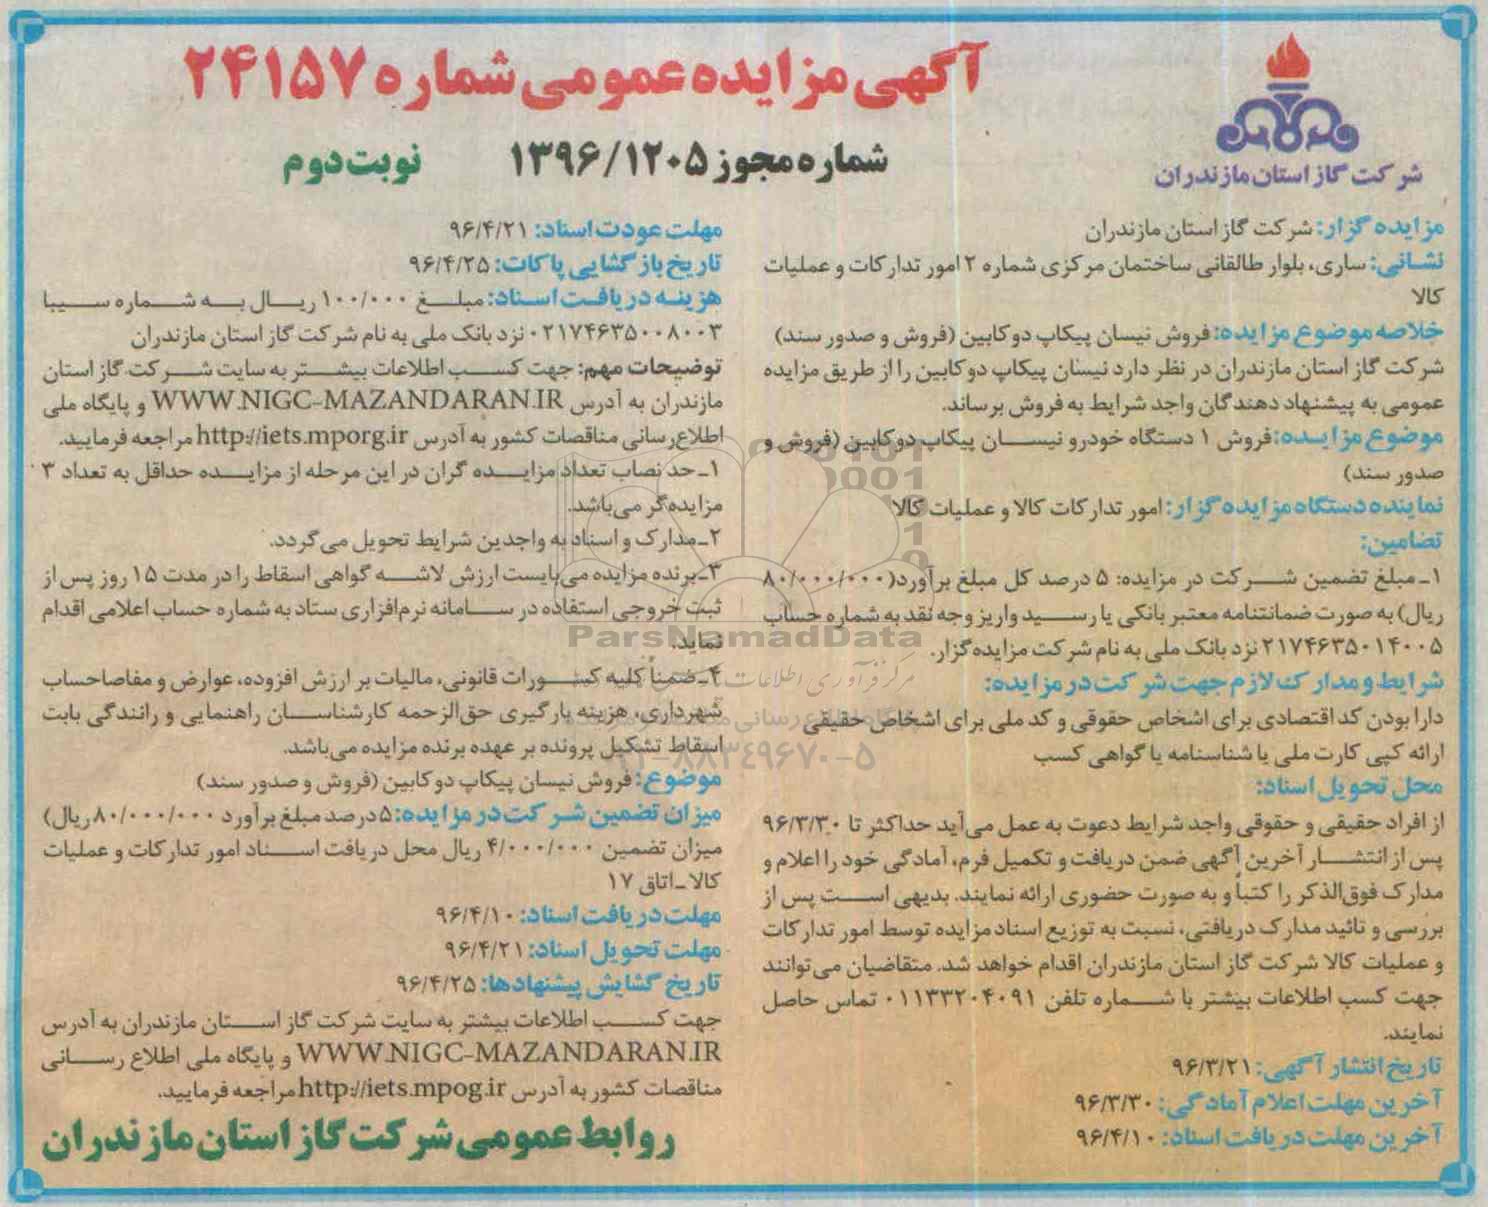 آگهی مزایده عمومی شماره ۲۴۱۵۷
شماره مجوز ۱۳۹۶/۱۲۰۵
نوبت دوم
شرکت گاز استان مازندران
مزایده گزار: شرکت گاز استان مازندران
نشانی: ساری، بلوار طالقانی ساختمان مرکزی شماره ۲ امور تدارکات و عملیات
کالا
خلاصه موضوع مزایده: فروش نیسان پیکاپ دوکابین (فروش و صدور سند)
شرکت گاز استان مازندران در نظر دارد نیسان پیکاپ دوکابین را از طریق مزایده
عمومی به پیشنهاد دهندگان واجد شرایط به فروش برساند.
موضوع مزایده: فروش ۱ دستگاه خودرو نیسان پیکاپ دوکابین (فروش و
صدور سند)
نماینده دستگاه مزایده گزار: امور تدارکات کالا و عملیات کالا
تضامین:
۱ـ مبلغ تضمین شرکت در مزایده: ۵ درصد کل مبلغ برآورد (۸۰/۰۰۰/۰۰۰
ریال) به صورت ضمانتنامه معتبر بانکی یا رسید واریز وجه نقد به شماره حساب
۲۱۷۴۶۳۵۰۱۴۰۰۵ نزد بانک ملی به نام شرکت مزایده‌گزار.
شرایط و مدارک لازم جهت شرکت در مزایده:
دارا بودن کد اقتصادی برای اشخاص حقوقی و کد ملی برای اشخاص حقیقی
ارائه کپی کارت ملی یا شناسنامه یا گواهی کسب
محل تحویل اسناد:
از افراد حقیقی و حقوقی واجد شرایط دعوت به عمل می‌آید حداکثر تا ۹۶/۳/۳۰
پس از انتشار آخرین آگهی ضمن دریافت و تکمیل فرم، آمادگی خود را اعلام و
مدارک فوق‌الذکر را کتباً و به صورت حضوری ارائه نمایند. بدیهی است پس از
بررسی و تائید مدارک دریافتی، نسبت به توزیع اسناد مزایده توسط امور تدارکات
و عملیات کالا شرکت گاز استان مازندران اقدام خواهد شد. متقاضیان می‌توانند
جهت کسب اطلاعات بیشتر با شماره تلفن ۰۱۱۳۳۲۰۴۰۹۱ تماس حاصل
نمایند.
تاریخ انتشار آگهی: ۹۶/۳/۲۱
آخرین مهلت اعلام آمادگی: ۹۶/۳/۳۰
آخرین مهلت دریافت اسناد: ۹۶/۴/۱۰
مهلت عودت اسناد: ۹۶/۴/۲۱
تاریخ بازگشایی پاکات: ۹۶/۴/۲۵
هزینه دریافت اسناد: مبلغ ۱۰۰/۰۰۰ ریال به شماره سیبا
۰۲۱۷۴۶۳۵۰۰۸۰۰۳ نزد بانک ملی به نام شرکت گاز استان مازندران
توضیحات مهم: جهت کسب اطلاعات بیشتر به سایت شرکت گاز استان
مازندران به آدرس WWW.NIGC-MAZANDARAN.IR و پایگاه ملی
اطلاع‌رسانی مناقصات کشور به آدرس http://iets.mporg.ir مراجعه فرمایید.
۱ـ حد نصاب تعداد مزایده گران در این مرحله از مزایده حداقل به تعداد ۳
مزایده‌گر می‌باشد.
۲ـ مدارک و اسناد به واجدین شرایط تحویل می‌گردد.
۳ـ برنده مزایده می‌بایست ارزش لاشه گواهی اسقاط را در مدت ۱۵ روز پس از
ثبت خروجی استفاده در سامانه نرم‌افزاری ستاد به شماره حساب اعلامی اقدام
نماید.
۴ـ ضمناً کلیه کسورات قانونی، مالیات بر ارزش افزوده، عوارض و مفاصاحساب
شهرداری، هزینه بارگیری حق‌الزحمه کارشناسان راهنمایی و رانندگی بابت
اسقاط تشکیل پرونده بر عهده برنده مزایده می‌باشد.
موضوع: فروش نیسان پیکاپ دوکابین (فروش و صدور سند)
میزان تضمین شرکت در مزایده: ۵ درصد مبلغ برآورد ۸۰/۰۰۰/۰۰۰ ریال)
میزان تضمین ۴/۰۰۰/۰۰۰ ریال محل دریافت اسناد امور تدارکات و عملیات
کالا ـ اتاق ۱۷
مهلت دریافت اسناد: ۹۶/۴/۱۰
مهلت تحویل اسناد: ۹۶/۴/۲۱
تاریخ گشایش پیشنهادها: ۹۶/۴/۲۵
جهت کسب اطلاعات بیشتر به سایت شرکت گاز استان مازندران به آدرس
WWW.NIGC-MAZANDARAN.IR و پایگاه ملی اطلاع رسانی
مناقصات کشور به آدرس http://iets.mpog.ir مراجعه فرمایید.
روابط عمومی شرکت گاز استان مازندران
ParsNamadData
مرکز فرآوری اطلاعات
۸۸۳۴۹۶۷۰-۵